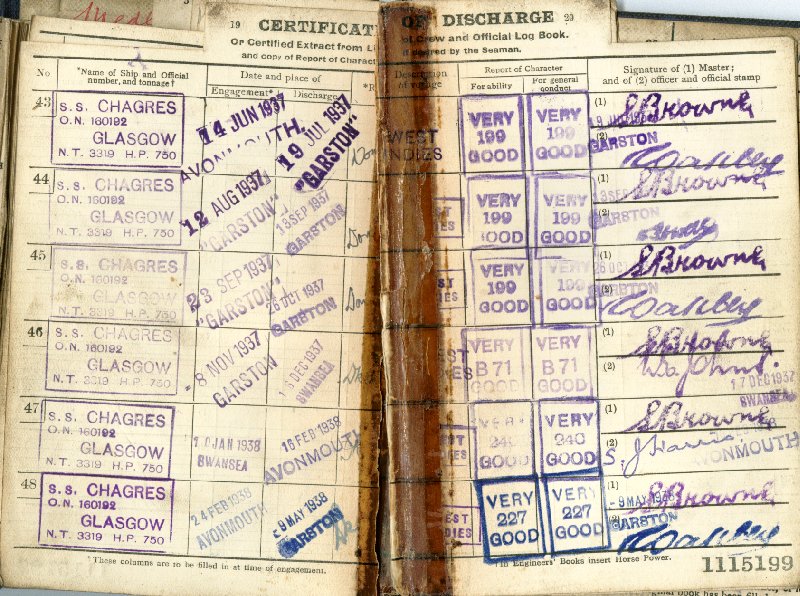 19 CERTIFICATE OF DISCHARGE 20
Or Certified Extract from Li of Crew and Official Log Book.
and copy of Report of Charac desired by the Seaman.
No
*Name of Ship and Official
number, and tonnage†
Date and place of
Engagement* Discharge
Description
of voyage
Report of Character
For ability
For general
conduct
Signature of (1) Master;
and of (2) officer and official stamp
43
S.S. CHAGRES
O.N. 160192
GLASGOW
N.T. 3319 H.P. 750
14 JUN 1937
AVONMOUTH.
19 JUL 1937
"GARSTON"
WEST
INDIES
VERY
199
GOOD
VERY
199
GOOD
(1) S Browne
19 JUL 1937
(2)
GARSTON
Oakley
44
S.S. CHAGRES
O.N. 160192
GLASGOW
N.T. 3319 H.P. 750
12 AUG 1937
"GARSTON"
13 SEP 1937
GARSTON
VERY
199
GOOD
VERY
199
GOOD
(1) S Browne
SEP
(2)
GARSTON
45
S.S. CHAGRES
O.N. 160192
GLASGOW
N.T. 3319 H.P. 750
23 SEP 1937
"GARSTON"
26 OCT 1937
GARSTON
VERY
199
GOOD
VERY
199
GOOD
(1) S Browne
26 OCT
(2)
GARSTON
Oakley
46
S.S. CHAGRES
O.N. 160192
GLASGOW
N.T. 3319 H.P. 750
-8 NOV 1937
GARSTON
DEC 1937
SWANSEA
VERY
B 71
GOOD
VERY
B 71
GOOD
(1) S Browne
(2)
17 DEC 1937
SWANSEA
47
S.S. CHAGRES
O.N. 160192
GLASGOW
N.T. 3319 H.P. 750
10 JAN 1938
SWANSEA
16 FEB 1938
AVONMOUTH
VERY
240
GOOD
VERY
240
GOOD
(1) S Browne
(2) S. J Harris
AVONMOUTH
48
S.S. CHAGRES
O.N. 160192
GLASGOW
N.T. 3319 H.P. 750
24 FEB 1938
AVONMOUTH
-9 MAY 1938
GARSTON
VERY
227
GOOD
VERY
227
GOOD
(1) S Browne
-9 MAY 1938
GARSTON
Oakley
*These columns are to be filled in at time of engagement.
†In Engineers' Books insert Horse Power.
1115199